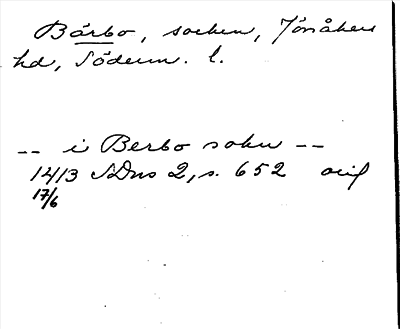 Bärbo, socken, Jönåkers
hd, Söderm. l.
-- i Berbo sokn --
1413 SDns 2, s. 652 orig
17/6